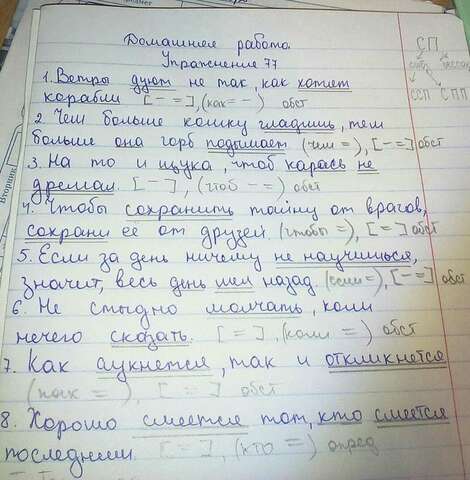 Домашнее работа.
Упражнение 77
СП
1. Ветры дуют не так, как хотят
корабли [- =], (как= -) обст
ССП СПП
2. Чем больше кошку гладишь, тем
больше она горб подымает. (чем =), [- =] обст
3. На то и щука, чтоб карась не
дремал. [-], (чтоб - =) обст
4. Чтобы сохранить тайну от врагов,
сохрани ее от друзей. (чтобы =), [=] обст
5. Если за день ничему не научишься,
значит, весь день шел назад. (если =), [- =] обст
6. Не стыдно молчать, коли
нечего сказать. [=], (коли =) обст
7. Как аукнется, так и откликнется
(как =), [=] обст
8. Хорошо смеется тот, кто смеется
последним. [- =], (кто =) опред
Вторник